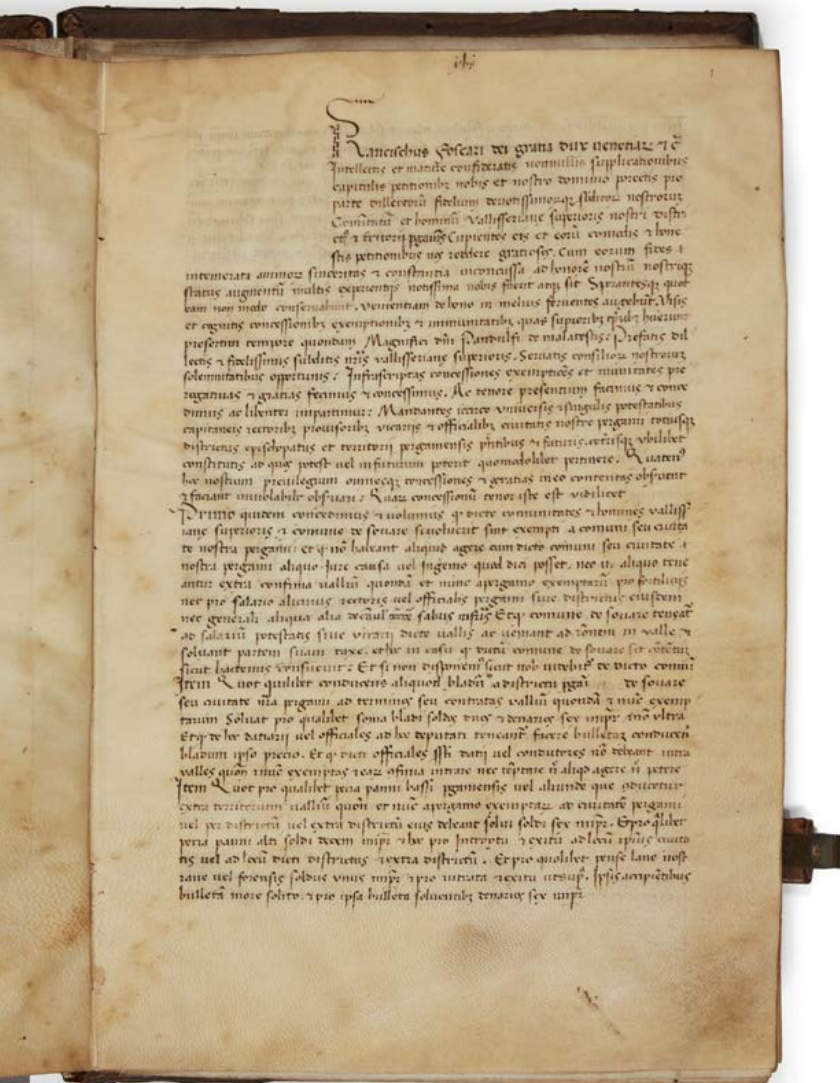 yhs
1
Francischus Foscari dei gratia dux venetiar[um] [et] c[etera]
Intellectis et mature consideratis nonnullis supplicationibus
capitulis petitionib[us] nobis et nostro dominio porectis pro
parte dillectorū fidelium devotissimorūq[ue] subditor[um] nostrorum
Comūitatū et hominū vallisserianę superioris nostri distri
Cupientes eis et eorū comodis [et] hone
stis petitionibus nos reddere gratiosos. Cum eorum fides [et]
intemerata animor[um] sinceritas [et] constantia inconcussa ad honorē nostrū nostriq[ue]
status augmentū multis experientijs notissima nobis fuerit atq[ue] sit Sperantesq[ue] quod
eam non modo conservabunt. vementiam de bono in melius ferventes augebūt. Visis
et cognitis concessionib[us] exemptionib[us] [et] immunitatib[us] quas superiorib[us] habuerunt
presertim tempore quondam Magnifici dn̄i Pandulfi de malatestis: Prefatis dil
lectis [et] fidelissimis subditis nr̄is vallisserianę superioris. Servatis consilior[um] nostrorum
solemnitatibus opportunis: Infrascriptas concessiones exemptiōes et munitates pre
rogativas [et] gratias fecimus [et] concessimus. Ac tenore presentium facimus [et] conce
dimus ac libenter impartimur: Mandantes iccirco universis [et] singulis potestatibus
capitaneis rectorib[us] provisorib[us] vicarijs [et] officialib[us] civitatis nostre pergami totiusq[ue]
districtus episcopatus et territorij pergamensis pn̄tibus [et] futuris. ceterisq[ue] ubilibet
constitutis ad quos potest vel in futurum poterit quomodolibet pertinere. Quaten[us]
hoc nostrum previlegium omnesq[ue] concessiones [et] gratias in eo contentas observent
[et] faciant inviolabilr̄ observari: Quar[um] concessionū tenor iste est videlicet
Primo quidem concedimus [et] volumus q[uod] dicte comunitates [et] homines valliss
iane superioris [et] comune de sovare si voluerit sint exempti a comuni seu civita
te nostra pergami: et q[uod] nō habeant aliquid agere cum dicto comuni seu civitate
nostra pergami aliquo iure causa vel ingenio quod dici posset. nec in aliquo tene
antur extra confinia valliū quondā et nunc a pergamo exemptarū pro fortilicijs
nec pro salario alicuius rectoris vel officialis pergami sive districtus eiusdem
nec generalr̄ aliqua alia de causa salvis infr̄is Etq[uod] comune de sovare teneat[ur]
ad salariū potestatis sive vicarij dicte vallis ac veniant ad rōnem in valle [et]
solvant partem suam taxe. et hoc in casu q[uod] dictū comune de sovare sit cōtentū
sicut hactenus consuevit: Et si non disponem[us] sicut nob[is] videbit[ur] de dicto comuni
Item Quod quilibet conducens aliquod bladū a districtu pgāi de sovare
seu civitate nr̄a pergami ad terminos seu contratas valliū quondā [et] nūc exemp
tarum Solvat pro qualibet soma bladi soldos duos [et] denarios sex impr̄ [et] nō ultra
Etq[uod] de hoc datiarij vel officiales ad hoc deputati teneant[ur] facere bulletas conducēti
bladum ipso precio. Et q[uod] dicti officiales datij vel conductores nō debeant intra
valles quon̄ [et] nūc exemptas [et] ear[um] cōfinia intrare nec aliq[uid] agere n[ec] petere
Item Quod pro qualibet petia panni bassi pgamensis vel aliunde que cōducetur
extra territorium valliū quon̄ et nūc a pergamo exemptar[um] ad civitatē pergami
vel per districtū vel extra districtū eius debeant solvi soldi sex impr̄. Et pro q[ua]libet
petia panni alti soldi decem impr̄ [et] hoc pro Introytu [et] exitu ad locū ipsius civita
tis vel ad locū dicti districtus [et] extra districtū. Et pro quolibet pense lane nost
rane vel forensis soldus unus impr̄ [et] pro intrata [et] exitu ut sup[ra]. Ipsis accipiētibus
bulletā more solito. [et] pro ipsa bulleta solventib[us] denarios sex impr̄